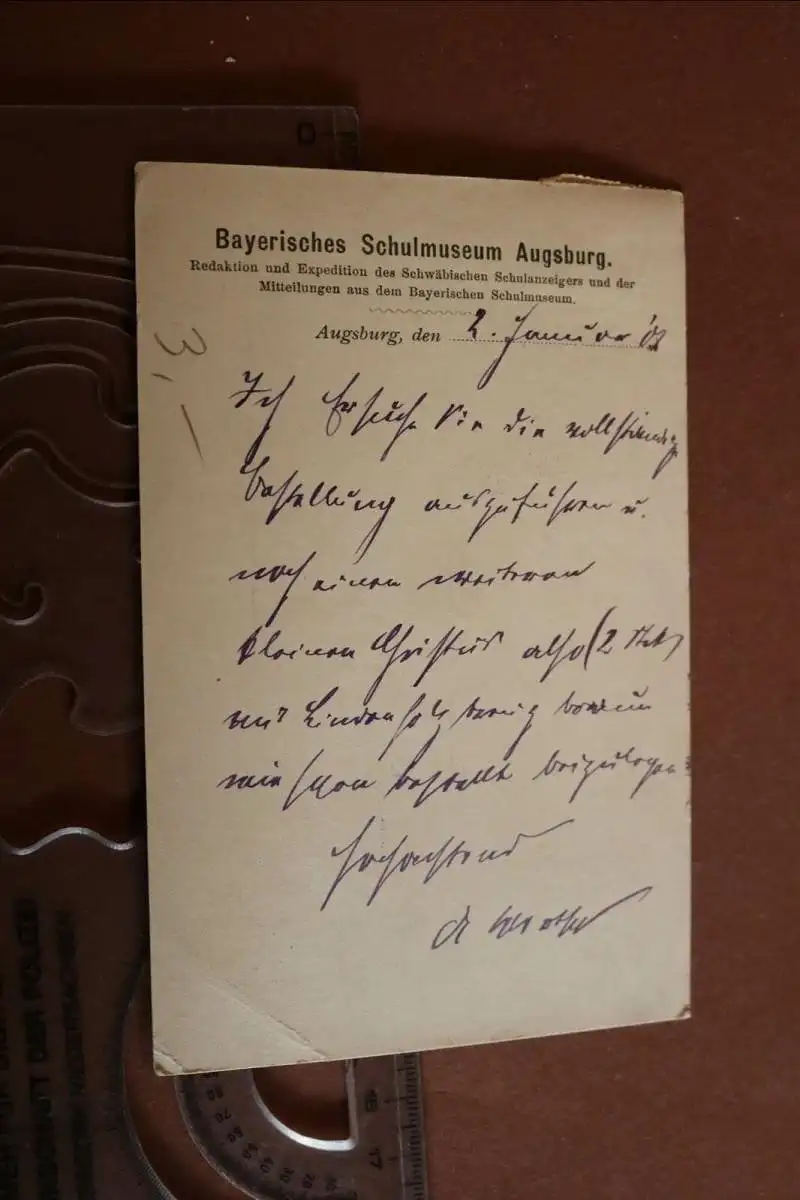 Bayerisches Schulmuseum Augsburg.
Redaktion und Expedition des Schwäbischen Schulanzeigers und der
Mitteilungen aus dem Bayerischen Schulmuseum.
Augsburg, den 2. Januar
3,–
Ich Ersuche Sie die vollständige
Bestellung auszuführen u.
noch einen weiteren
kleinen Christus also (2 Stck)
aus Lindenholz braun
wie schon bestellt beizulegen
Hochachtend